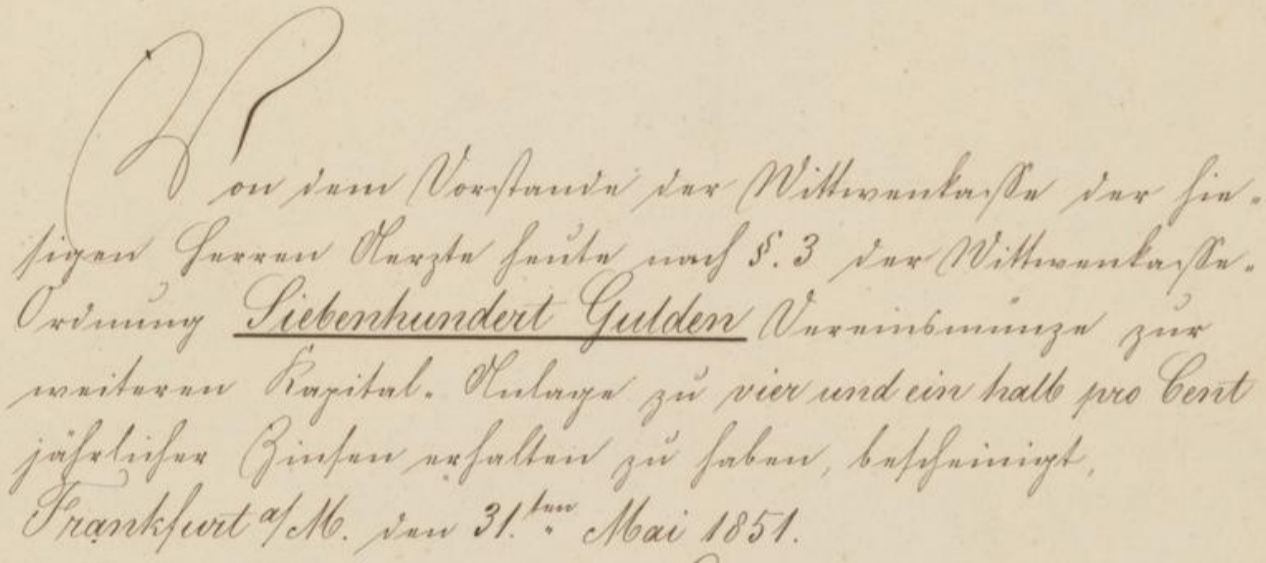 Von dem Vorstande der Wittwenkasse der hie-
sigen Herren Aerzte heute nach §. 3 der Wittwenkasse-
Ordnung Siebenhundert Gulden Vereinsmünze zur
weiteren Kapital-Anlage zu vier und ein halb pro Cent
jährlicher Zinsen erhalten zu haben, bescheinigt,
Frankfurt a/M. den 31.ten Mai 1851.